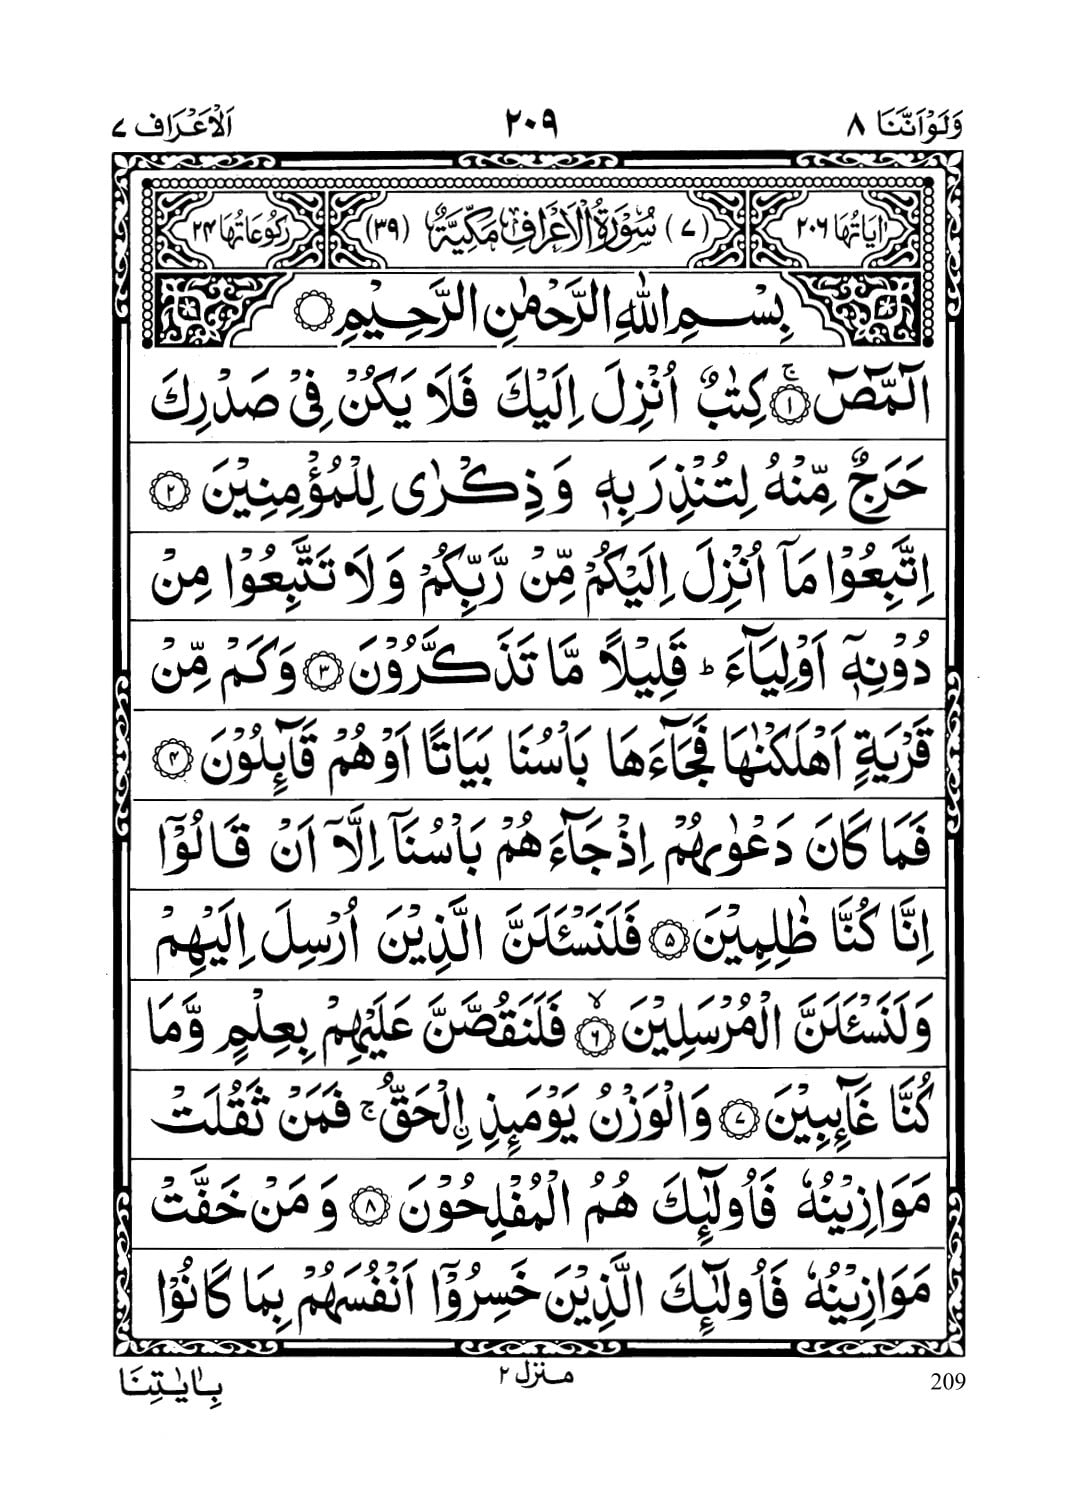 وَلَوْاَنَّنَا ۸
۲۰۹
اَلْاَعْرَاف ۷
اٰیَاتُهَا ۲۰۶
(۷) سُوْرَةُ الْاَعْرَافِ مَكِّیَّةٌ (۳۹)
رُكُوْعَاتُهَا ۲۴
بِسْمِ اللّٰهِ الرَّحْمٰنِ الرَّحِیْمِ
الٓمّٓصٓ ۚ۝۱ كِتٰبٌ اُنْزِلَ اِلَیْكَ فَلَا یَكُنْ فِیْ صَدْرِكَ
حَرَجٌ مِّنْهُ لِتُنْذِرَ بِهٖ وَذِكْرٰی لِلْمُؤْمِنِیْنَ ۝۲
اِتَّبِعُوْا مَاۤ اُنْزِلَ اِلَیْكُمْ مِّنْ رَّبِّكُمْ وَلَا تَتَّبِعُوْا مِنْ
دُوْنِهٖۤ اَوْلِیَآءَ ؕ قَلِیْلًا مَّا تَذَكَّرُوْنَ ۝۳ وَكَمْ مِّنْ
قَرْیَةٍ اَهْلَكْنٰهَا فَجَآءَهَا بَاْسُنَا بَیَاتًا اَوْ هُمْ قَآئِلُوْنَ ۝۴
فَمَا كَانَ دَعْوٰىهُمْ اِذْ جَآءَهُمْ بَاْسُنَاۤ اِلَّاۤ اَنْ قَالُوْۤا
اِنَّا كُنَّا ظٰلِمِیْنَ ۝۵ فَلَنَسْـَٔلَنَّ الَّذِیْنَ اُرْسِلَ اِلَیْهِمْ
وَلَنَسْـَٔلَنَّ الْمُرْسَلِیْنَ ۙ۝۶ فَلَنَقُصَّنَّ عَلَیْهِمْ بِعِلْمٍ وَّمَا
كُنَّا غَآئِبِیْنَ ۝۷ وَالْوَزْنُ یَوْمَئِذِ ِ۟الْحَقُّ ۚ فَمَنْ ثَقُلَتْ
مَوَازِیْنُهٗ فَاُولٰٓئِكَ هُمُ الْمُفْلِحُوْنَ ۝۸ وَمَنْ خَفَّتْ
مَوَازِیْنُهٗ فَاُولٰٓئِكَ الَّذِیْنَ خَسِرُوْۤا اَنْفُسَهُمْ بِمَا كَانُوْا
209
منزل ۲
بِاٰیٰتِنَا